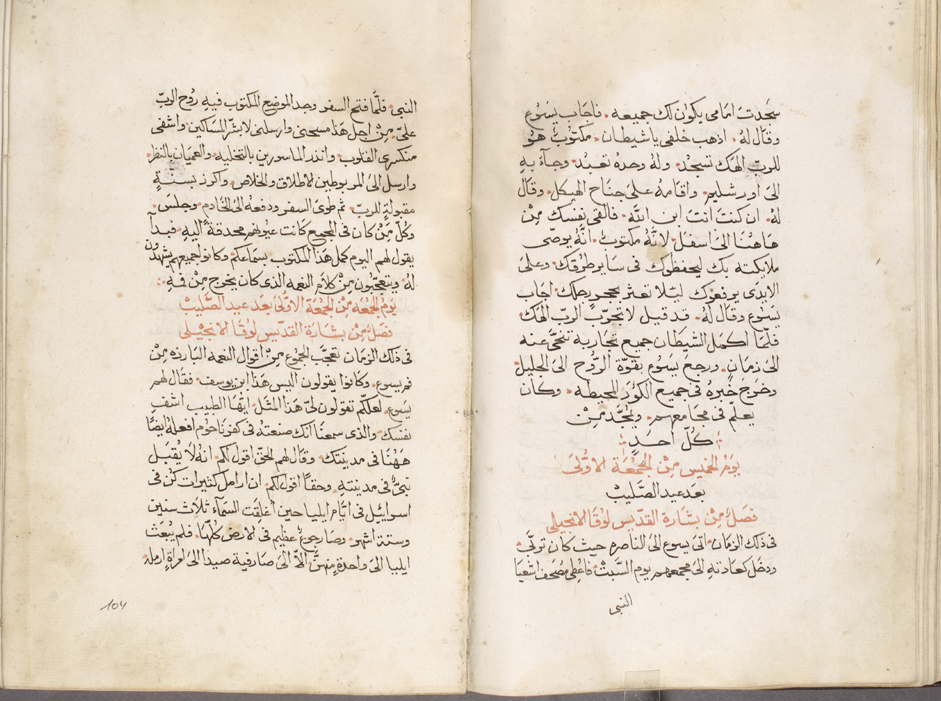 سجدت امامى يكون لك جميعه فاجاب يسوع
وقال له اذهب خلفى ياشيطان مكتوب هو
للرب الهك تسجد وله وحده تعبد وجاء به
الى اورشليم واقامه على جناح الهيكل وقال
له ان كنت انت ابن الله فالقى نفسك من
هاهنا الى اسفل لانه مكتوب انه يوصى
ملايكته بك ليحفظوك فى ساير طرقك وعلى
الايدى يرفعوك ليلا تعثر بحجر رجلك اجاب
يسوع وقال له قد قيل لا تجرب الرب الهك
فلما اكمل الشيطان جميع تجاربه تنحى عنه
الى زمان ورجع يسوع بقوة الروح الى الجليل
وخرج خبره فى جميع الكور المحيطه وكان
يعلم فى مجامعهم ويمجد من
كل احد
يوم الخميس من الجمعة الاولى
بعد عيد الصليب
فصل من بشارة القديس لوقا الانجيلى
فى ذلك الزمان اتى يسوع الى الناصره حيث كان تربى
ودخل كعادته الى مجمعهم يوم السبت فاعطى مصحف اشعيا
النبى
النبى فلما فتح السفر وجد الموضع المكتوب فيه روح الرب
على من اجل هذا مسحنى وارسلنى لابشر المساكين واشفى
منكسرى القلوب وانذر الماسورين بالتخليه والعميان بالنظر
وارسل الى المربوطين لاطلاق والخلاص واكرز بسنة
مقبولة للرب ثم طوى السفر ودفعه الى الخادم وجلس
وكل من كان فى المجمع كانت عيونهم محدقة اليه فبدأ
يقول لهم اليوم كمل هذا المكتوب بسماعكم وكانوا جميعهم يشهدون
له ويتعجبون من كلام النعمه الذى كان يخرج من فيه
يوم الجمعه من الجمعة الاولى بعد عيد الصليب
فصل من بشارة القديس لوقا الانجيلى
فى ذلك الزمان تعجب الجموع من اقوال النعمه البارزه من
فم يسوع وكانوا يقولون اليس هذا ابن يوسف فقال لهم
يسوع لعلكم تقولون لى هذا المثل ايها الطبيب اشف
نفسك والذى سمعنا انك صنعته فى كفرناحوم افعله ايضا
ههنا فى مدينتك وقال لهم الحق اقول لكم انه لا يقبل
نبى فى مدينته وحقا اقول لكم ان ارامل كثيرات كن فى
اسراييل فى ايام ايليا حين اغلقت السماء ثلاث سنين
وستة اشهر وصار جوع عظيم فى الارض كلها فلم يبعث
ايليا الى واحدة منهن الا الى صارفية صيدا الى امراة ارمله
104